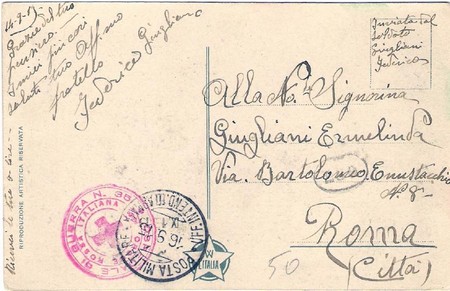 14-9-15
Grazie del tuo
pensiero.
I miei più cari
saluti tuo Off.mo
fratello
Federico Giugliani
Inviata dal
soldato
Giugliani
Federico
Alla N. Signorina
Giugliani Ermelinda
Via Bartolomeo Eustacchio
N. 8
Roma
(Città)
RIPRODUZIONE ARTISTICA RISERVATA
LE DI GUERRA N. 35
ROSSA ITALIANA
POSTA MILITARE
16.9.15
W L'ITALIA
50